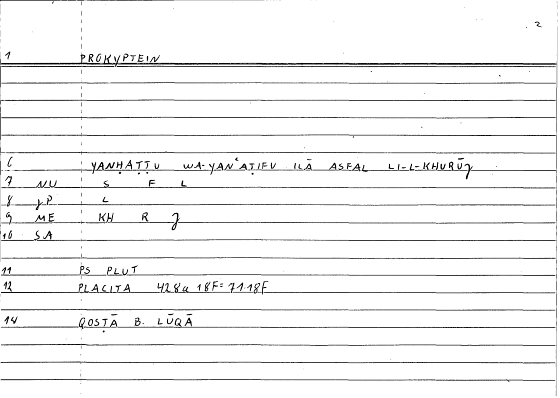 2
1 PROKYPTEIN
6 YANḤAṬṬU WA-YANʿAṬIFU ILĀ ASFAL LI-L-KHURŪJ
7 NU S F L
8 JP L
9 ME KH R J
10 SA
11 PS PLUT
12 PLACITA 428a 18F=71.18F
14 QOSṬĀ B. LŪQĀ